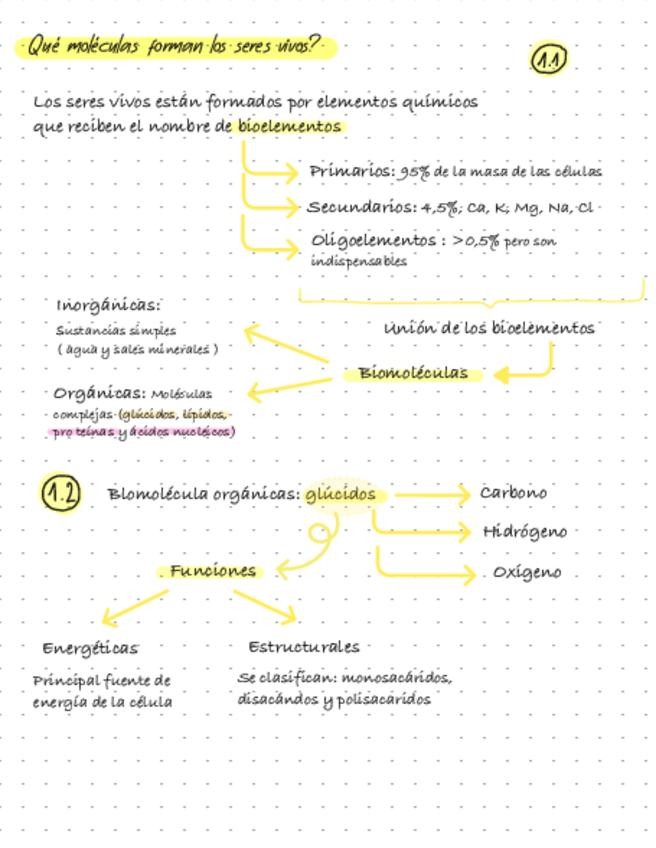 Qué moléculas forman los seres vivos?
1.1
Los seres vivos están formados por elementos químicos
que reciben el nombre de bioelementos
Primarios: 95% de la masa de las células
Secundarios: 4,5%; Ca, K, Mg, Na, Cl
Oligoelementos : >0,5% pero son
indispensables
Unión de los bioelementos
Biomoléculas
Inorgánicas:
Sustancias simples
(agua y sales minerales)
Orgánicas: Moléculas
complejas (glúcidos, lípidos,
proteínas y ácidos nucleicos)
1.2
Biomolécula orgánicas: glúcidos
Carbono
Hidrógeno
Oxígeno
Funciones
Energéticas
Principal fuente de
energía de la célula
Estructurales
Se clasifican: monosacáridos,
disacáridos y polisacáridos